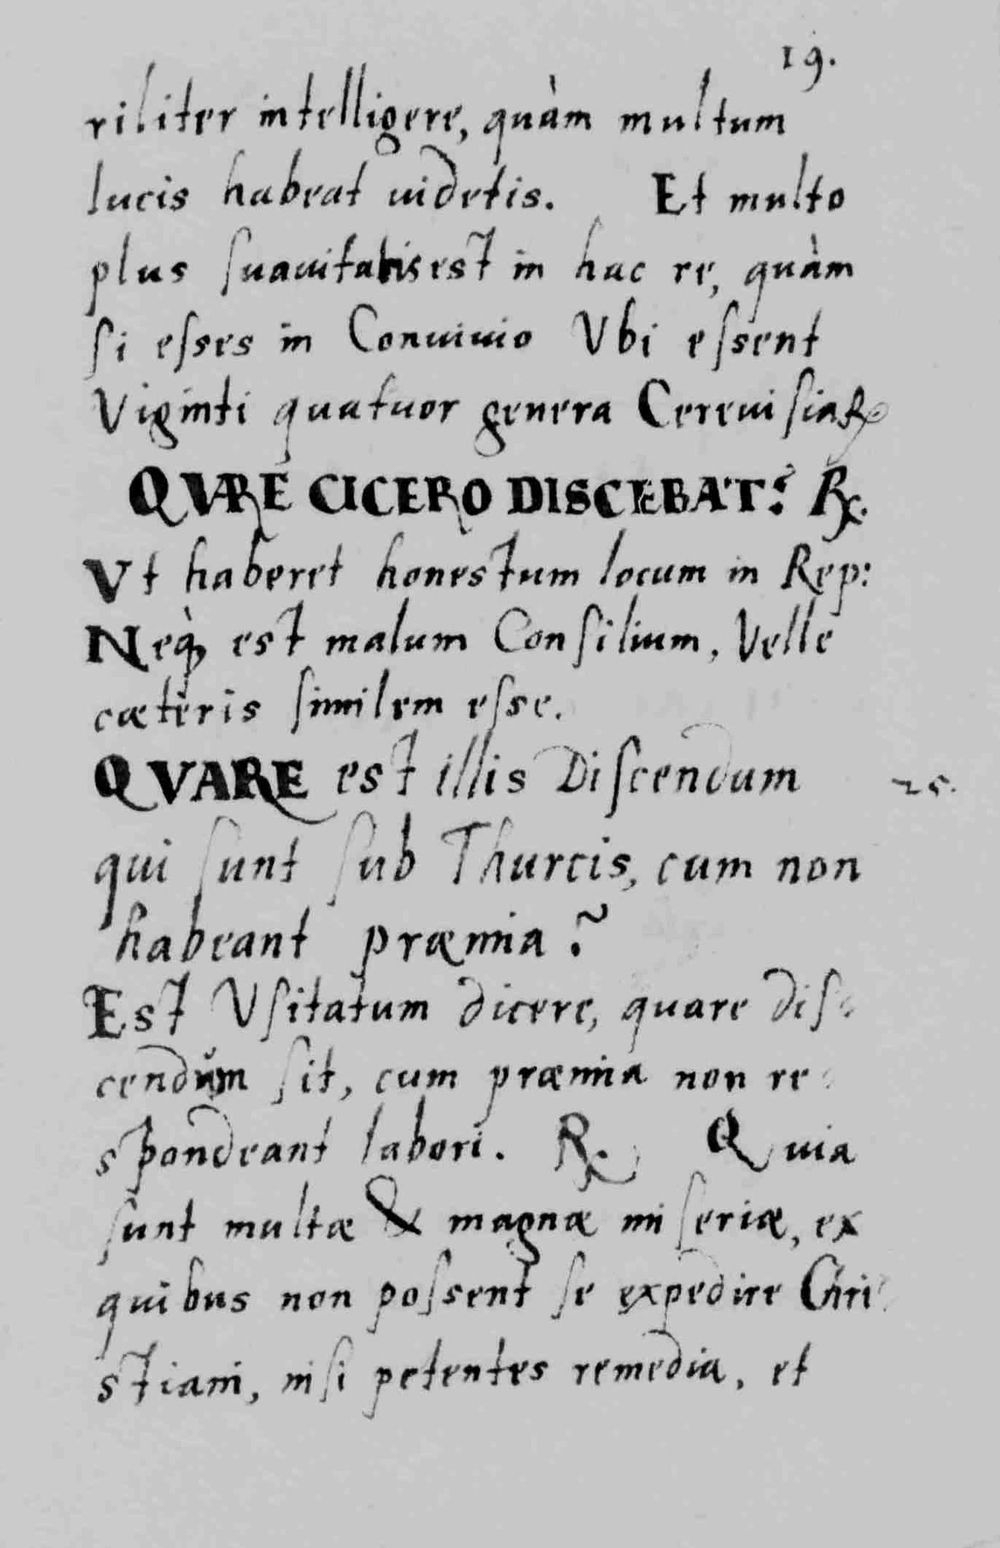 19.
riliter intelligere, quàm multum
lucis habeat uidetis. Et multo
plus suauitatis est in hac re, quàm
si esses in Conuiuio Vbi essent
Viginti quatuor genera Cereuisiaꝝ
QVARE CICERO DISCEBAT? ℞.
Vt haberet honestum locum in Rep:
Neq́ꝫ est malum Consilium, Velle
cæteris similem esse.
QVARE est illis Discendum 25.
qui sunt sub Thurcis, cum non
habeant præmia?
Est Vsitatum dicere, quare dis-
cendũm sit, cum præmia non re-
spondeant labori. ℞. Quia
sunt multæ & magnæ miseriæ, ex
quibus non possent se expedire Chri-
stiani, nisi petentes remedia, et